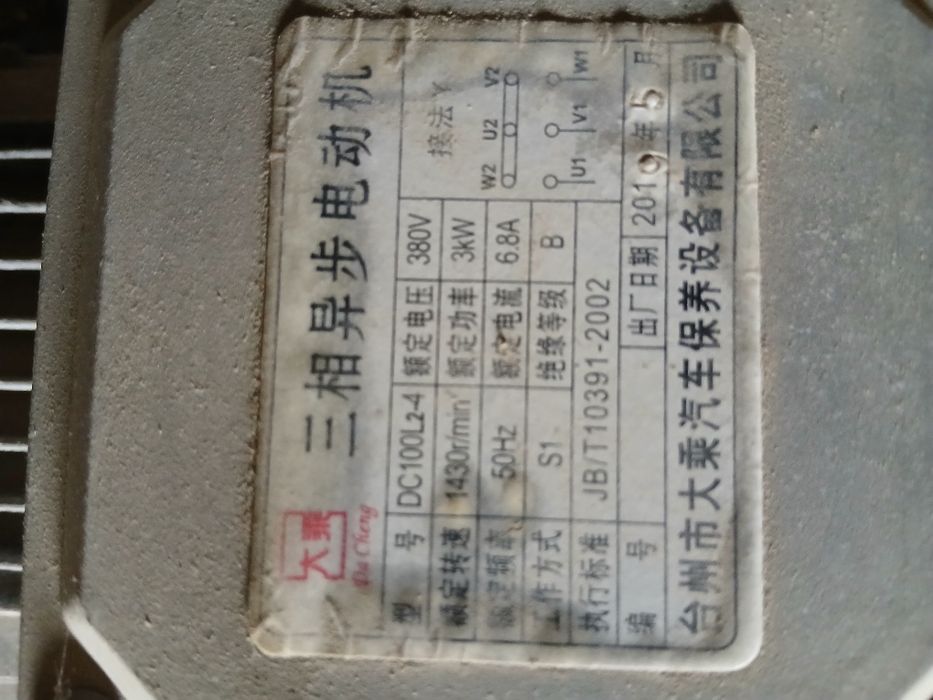 大乘
Da Cheng
三相异步电动机
型号 DC100L2-4 额定电压 380V 接法 Y
额定转速 1430r/min 额定功率 3kW
额定频率 50Hz 额定电流 6.8A
工作方式 S1 绝缘等级 B
W2 U2 V2
U1 V1 W1
执行标准 JB/T10391-2002
编号 出厂日期 2019年5月
台州市大乘汽车保养设备有限公司